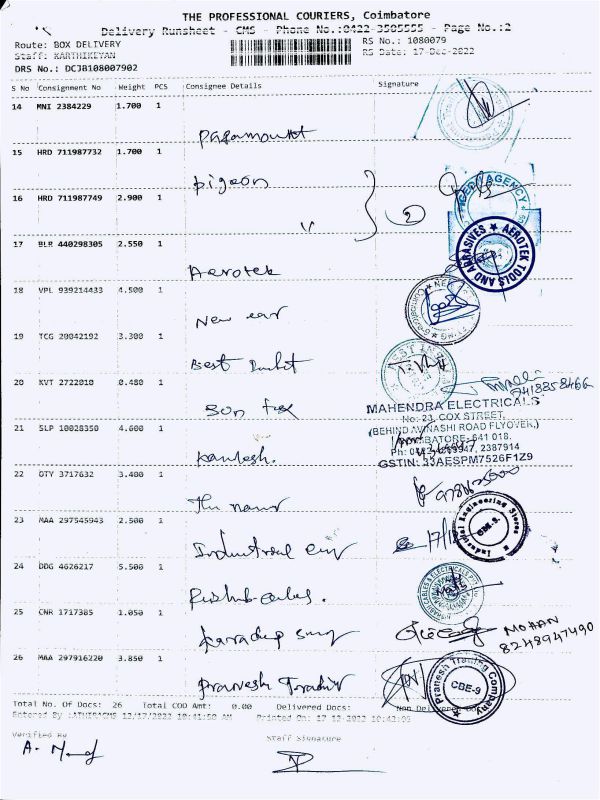 THE PROFESSIONAL COURIERS, Coimbatore
Delivery Runsheet - CMS - Phone No.:0422-3505555 - Page No.:2
Route: BOX DELIVERY
RS No.: 1080079
Staff: KARTHIKEYAN
RS Date: 17-Dec-2022
DRS No.: DCJB108007902
S No Consignment No Weight PCS Consignee Details Signature
14 MNI 2384229 1.700 1
Paramount
15 HRD 711987732 1.700 1
pigeon
16 HRD 711987749 2.900 1
2
AGENCY
17 BLR 440298305 2.550 1
Aerotek
AEROTEK TOOLS AND ABRASIVES
18 VPL 939214433 4.500 1
New ear
19 TCG 20042192 3.300 1
Best
20 KVT 2722010 0.480 1
7418358466
MAHENDRA ELECTRICALS
No: 23, COX STREET,
(BEHIND AVINASHI ROAD FLYOVER,)
21 SLP 10028350 4.600 1
COIMBATORE-641 018.
2387914
GSTIN: 33AESPM7526F1Z9
Kamlesh.
22 OTY 3717632 3.400 1
The
23 MAA 297545943 2.500 1
Industrial Engineering Stores
CBE-9.
Industrial
17/12
24 DDG 4626217 5.500 1
CABLES & ELECTRICALS
25 CNR 1717385 1.050 1
MOHAN
8248947490
26 MAA 297916220 3.850 1
Pranesh Trading
Pranesh Trading Company
CBE-9
Total No. Of Docs: 26 Total COD Amt: 0.00 Delivered Docs: Non Delivered
Entered By :ATHIRACMS 12/17/2022 10:41:50 AM Printed On: 17-12-2022 10:42:05
Verified By
Staff Signature